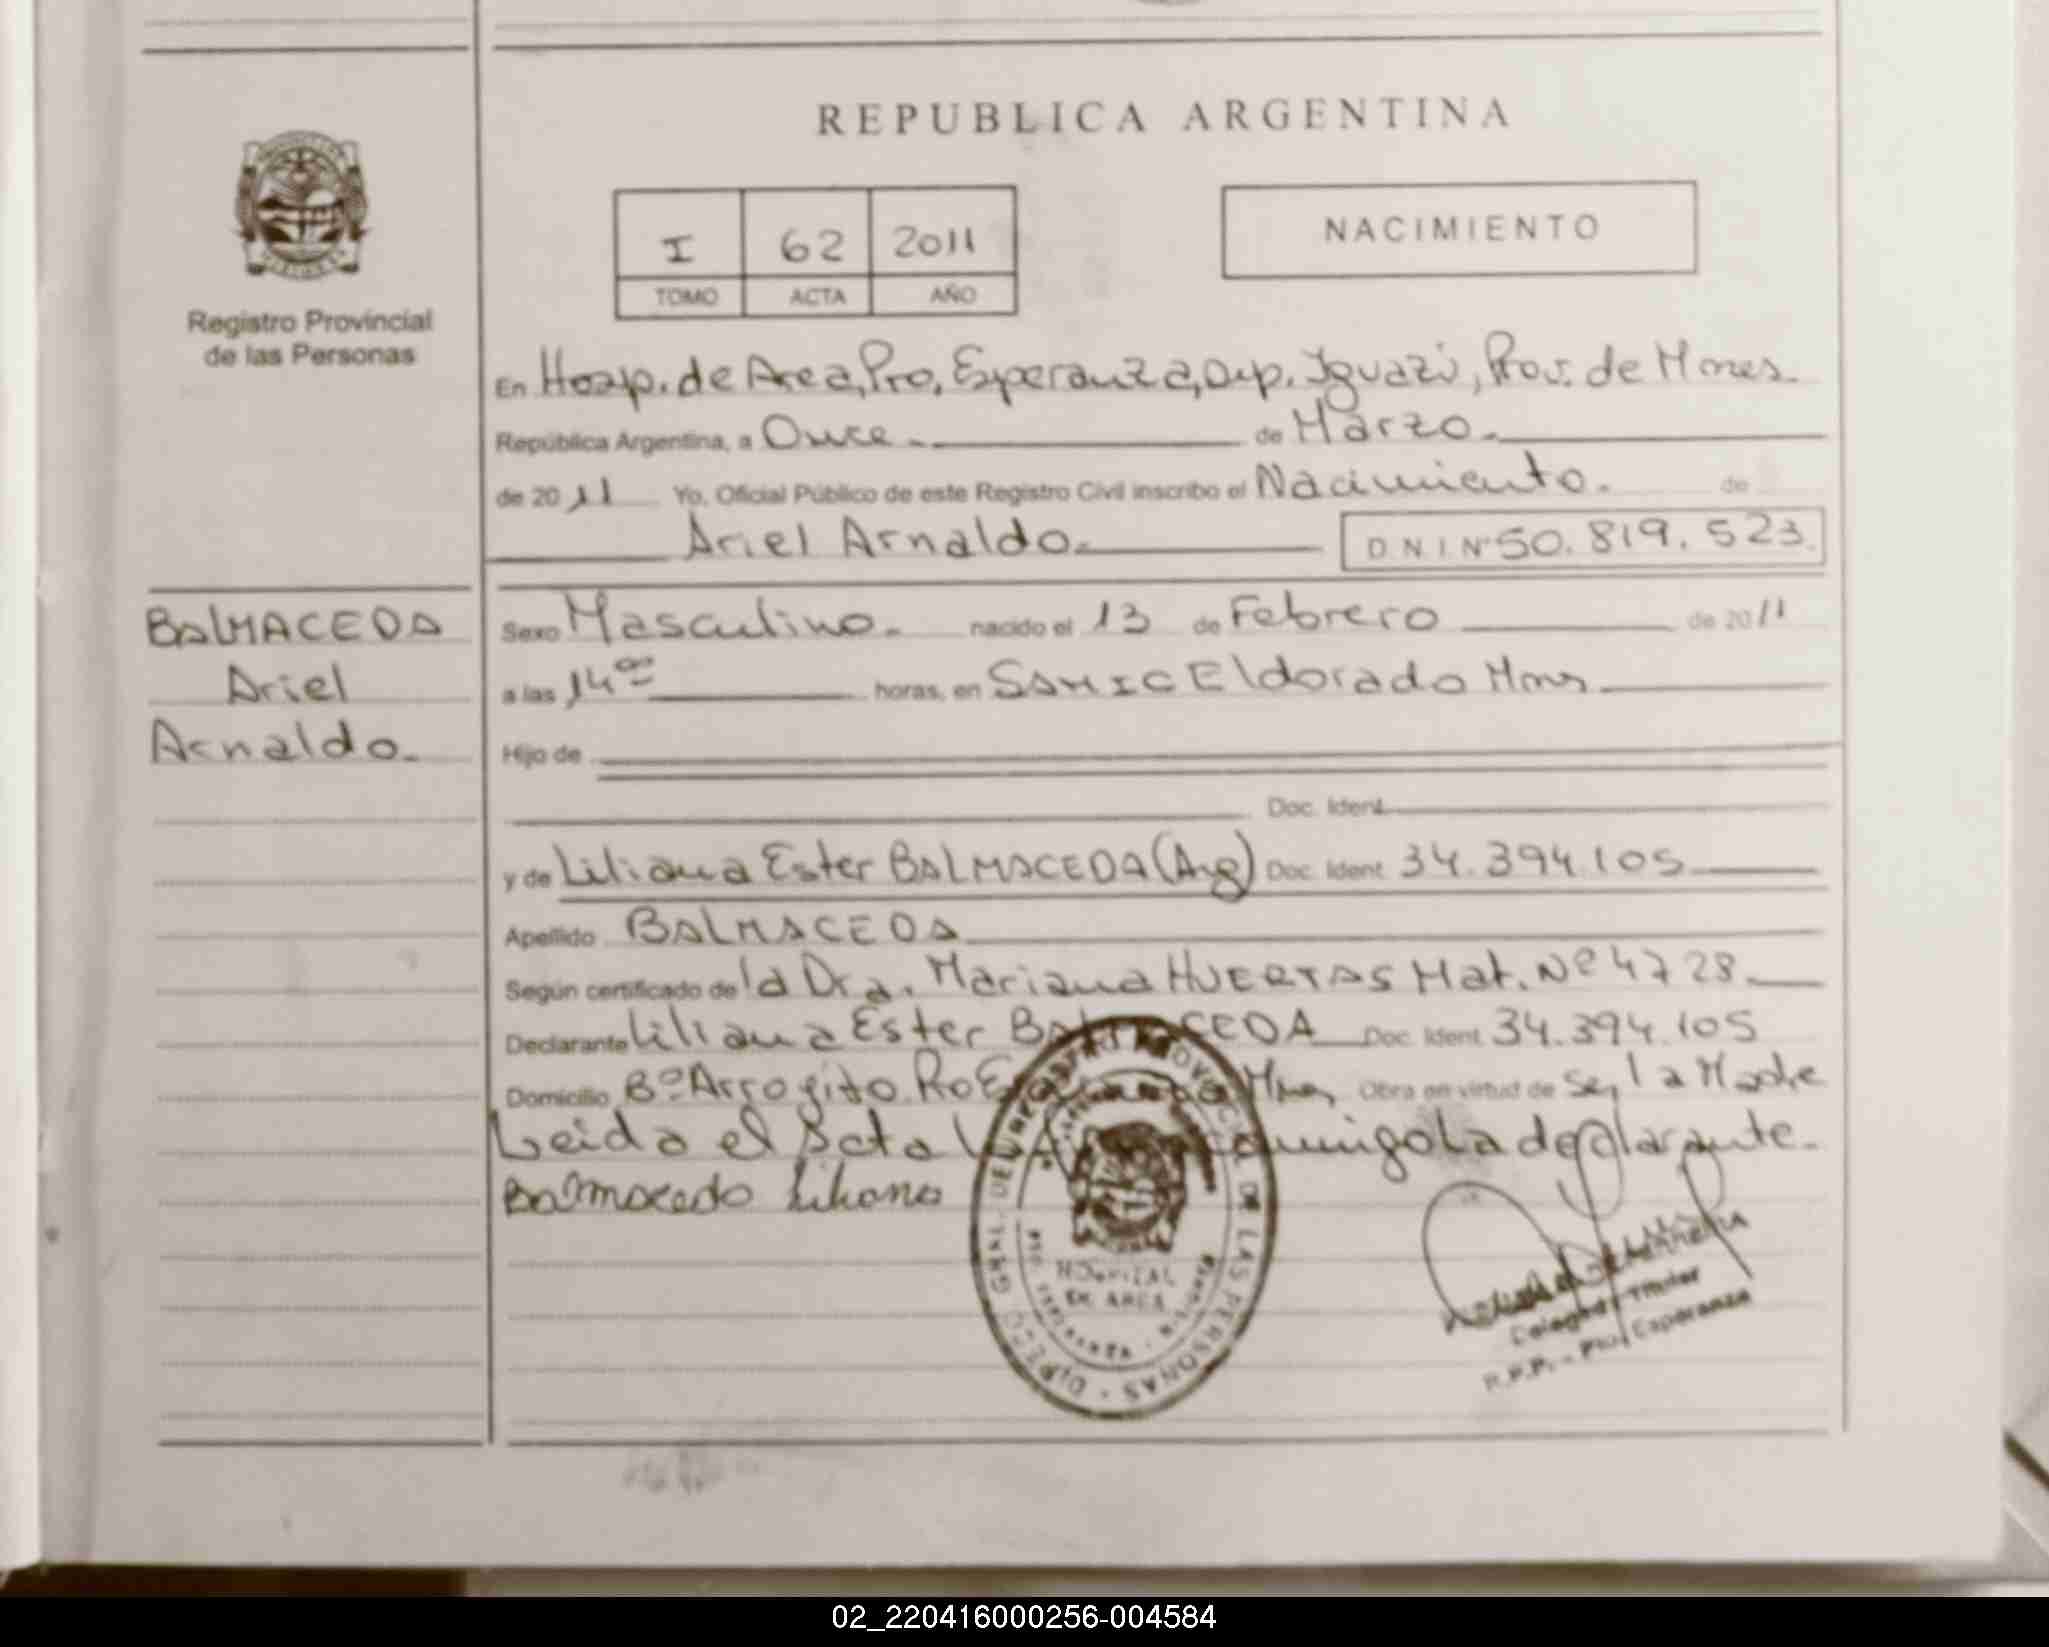 REPUBLICA ARGENTINA
I 62 2011
TOMO ACTA AÑO
NACIMIENTO
Registro Provincial
de las Personas
En Hosp. de Area, Pto, Esperanza, Dep. Iguazú, Prov. de Mnes.
República Argentina, a Once.- de Marzo.-
de 2011 Yo, Oficial Público de este Registro Civil inscribo el Nacimiento. de
Ariel Arnaldo.- D N I Nº 50.819.523.
BALMACEDA
Ariel
Arnaldo.-
Sexo Masculino.- nacido el 13 de Febrero de 2011
a las 14⁰⁰ horas, en SAMIC Eldorado Mnes
Hijo de
Doc. Ident.
y de Liliana Ester BALMACEDA (Arg) Doc. Ident. 34.394.105
Apellido BALMACEDA
Según certificado de la Dra. Mariana HUERTAS Mat. Nº 4728
Declarante Liliana Ester BALMACEDA Doc. Ident 34.394.105
Domicilio Bº Arroyito Mnes Obra en virtud de Ser la Madre
Leida el Acta la declarante.-
Balmaceda Liliana
DIRECC. GRAL. DEL REGISTRO PROVINCIAL DE LAS PERSONAS
HOSPITAL
DE AREA
PTO. ESPERANZA
Delegada Titular
R.P.P. - Pto. Esperanza
02_220416000256-004584